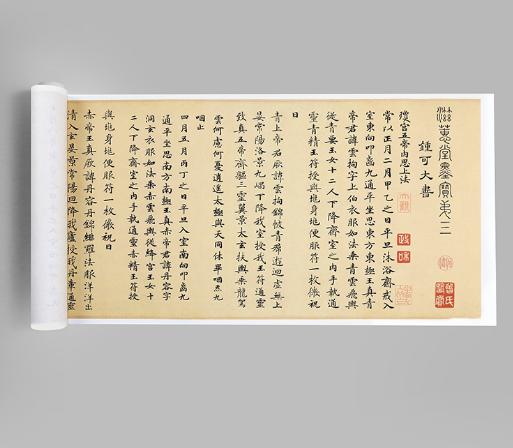 滋蕙堂墨寶卷三
鍾可大書
瓊宮五帝內思上法
常以正月二月甲乙之日平旦沐浴齋戒入
室東向叩齒九通平坐思東方東極玉真青
帝君諱雲拘字上伯衣服如法乘青雲飛輿
從青要玉女十二人下降齋室之內手執通
靈青精玉符授與兆身兆便服符一枚微祝
曰
青上帝君厥諱雲拘錦帔青裙遊迴虛無上
晏常陽洛景九嵎下降我室授我玉符通靈
致真五帝齊軀三靈翼景太玄扶輿乘龍駕
雲何慮何憂遨遊太極與天同休畢咽炁九
咽止
四月五月丙丁之日平旦入室南向叩齒九
通平坐思南方南極玉真赤帝君諱丹容字
洞玄衣服如法乘赤雲飛輿從絳宮玉女十
二人下降齋室之內手執通靈赤精玉符授
與兆身兆便服符一枚微祝曰
赤帝玉真厥諱丹容丹錦緋羅法服洋洋出
清入玄晏景常陽迴降我廬授我丹章通靈